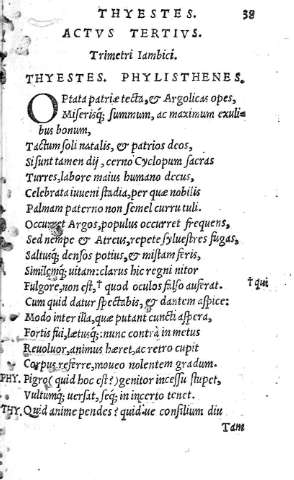 THYESTES. 38
ACTVS TERTIVS.
Trimetri Iambici.
THYESTES. PHYLISTHENES.
OPtata patriæ tecta, & Argolicas opes,
Miserisq; summum, ac maximum exuli-
bus bonum,
Tactum soli natalis, & patrios deos,
Si sunt tamen dij, cerno Cyclopum sacras
Turres, labore maius humano decus,
Celebrata iuueni stadia, per quæ nobilis
Palmam paterno non semel curru tuli.
Occurret Argos, populus occurret frequens,
Sed nempe & Atreus, repete syluestres fugas,
Saltusq; densos potius, & mistam feris,
Similemq; uitam: clarus hic regni nitor
Fulgore, non est, † quod oculos falso auferat. † qui
Cum quid datur spectabis, & dantem aspice:
Modo inter illa, quæ putant cuncti aspera,
Fortis fui, lætusq;: nunc contrà in metus
Reuoluor, animus hæret, ac retro cupit
Corpus referre, moueo nolentem gradum.
PHY. Pigro (quid hoc est?) genitor incessu stupet,
Vultumq; uersat, seq; in incerto tenet.
THY. Quid anime pendes? quid ue consilium diu
Tam